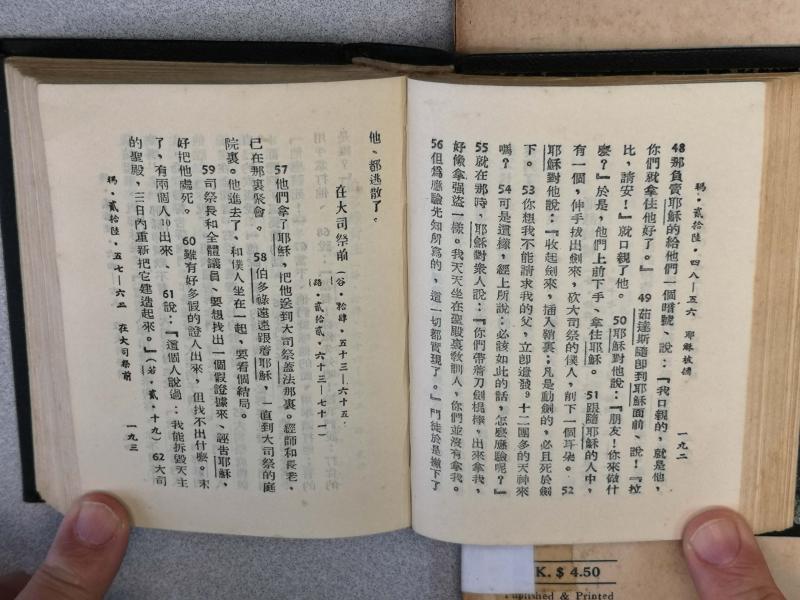 瑪·貳拾陸·四八—五六 耶穌被擄 一九二
48那負賣耶穌的給他們一個暗號、說：『我口親的，就是他，
你們就拿住他好了。』 49茹達斯隨卽到耶穌面前、說！『拉
比，請安！』就口親了他。 50耶穌對他說：『朋友！你來做什
麼？』於是，他們上前下手、拿住耶穌。 51跟隨耶穌的人中，
有一個，伸手拔出劍來，砍大司祭的僕人，削下一個耳朶。 52
耶穌對他說：『收起劍來，插入鞘裏：凡是動劍的，必且死於劍
下。 53你想我不能請求我的父，立卽遣發9十二團多的天神來
嗎？ 54可是這樣，經上所說：必該如此的話，怎麼應驗呢？』
55就在那時，耶穌對衆人說：『你們帶着刀劍棍棒，出來拿我，
好像拿强盜一樣。我天天坐在聖殿裏敎訓人，你們並沒有拿我。
56但爲應驗先知所寫的，這一切都實現了。』門徒於是撇下了
他、都逃散了。
在大司祭前（谷·拾肆·五十三—六十五·
路·貳拾貳·六十三—七十一）
57他們拿了耶穌，把他送到大司祭蓋法那裏。經師和長老，
已在那裏聚會。 58伯多祿遠遠跟着耶穌，一直到大司祭的庭
院裏。他進去了，和僕人坐在一起，要看個結局。
59司祭長和全體議員、要想找出一個假證據來、誣告耶穌，
好把他處死。 60雖有好多假的證人出來，但找不出什麼。末
了，有兩個人10出來、 61說：『這個人說過：我能拆毀天主
的聖殿，三日內重新把它建造起來。』（若·貳·十九） 62大司
瑪·貳拾陸·五七—六二 在大司祭前 一九三
K. $ 4.50
Published & Printed